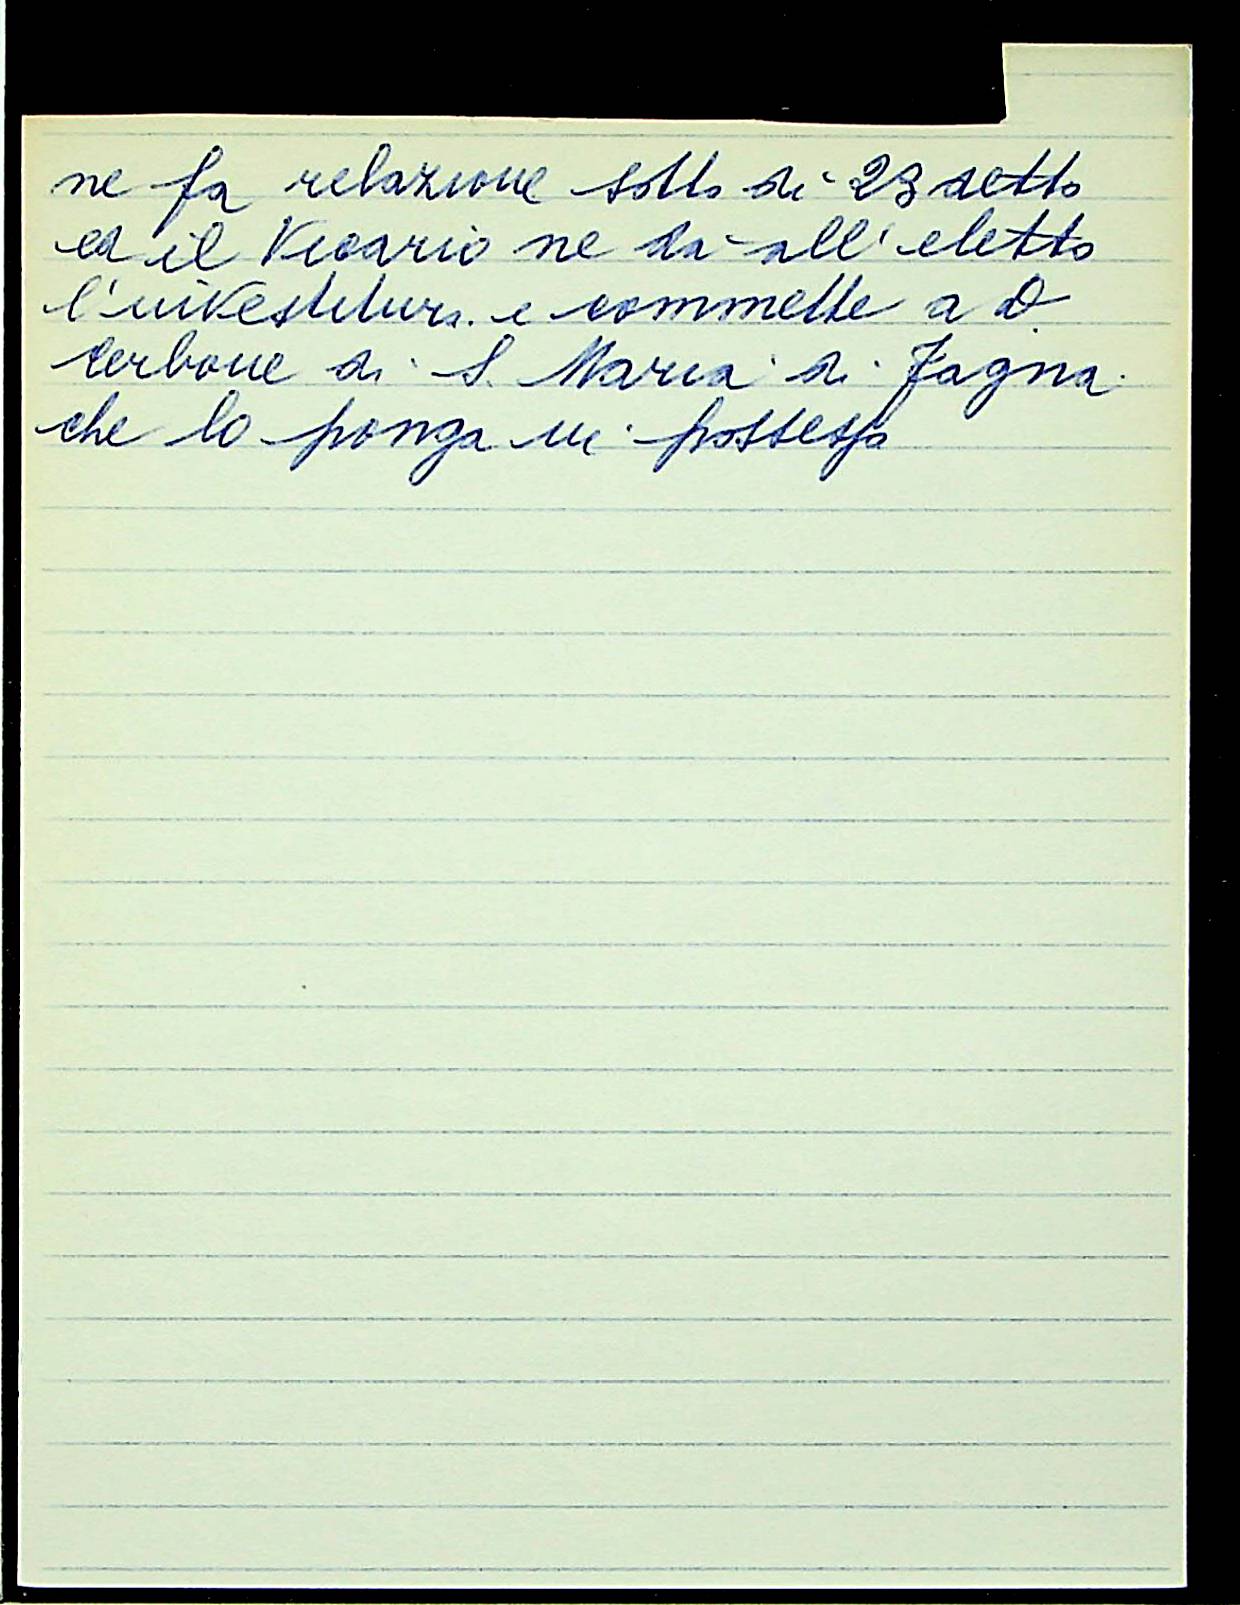 ne fa relazione sotto dì 23 detto
ed il Vicario ne dà all'eletto
l'investitura e commette a D.
Cerbone di S. Maria di Fagna
che lo ponga in possesso